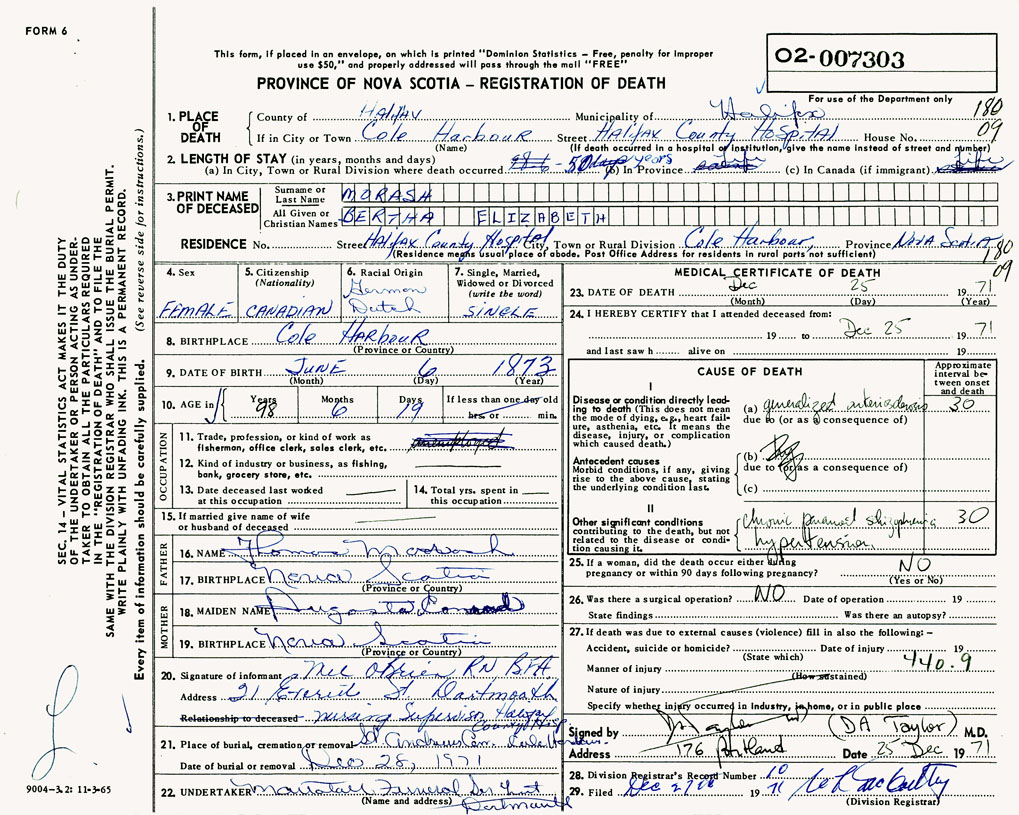 FORM 6
This form, if placed in an envelope, on which is printed "Dominion Statistics – Free, penalty for improper
use $50," and properly addressed will pass through the mail "FREE"
PROVINCE OF NOVA SCOTIA – REGISTRATION OF DEATH
02-007303
For use of the Department only
180
09
1. PLACE OF DEATH
County of Halifax Municipality of Halifax
If in City or Town Cole Harbour Street Halifax County Hospital House No.
(Name) (If death occurred in a hospital or institution, give the name instead of street and number)
2. LENGTH OF STAY (in years, months and days)
(a) In City, Town or Rural Division where death occurred 50 years (b) In Province Life (c) In Canada (if immigrant) Life
3. PRINT NAME OF DECEASED
Surname or Last Name MORASH
All Given or Christian Names BERTHA ELIZABETH
RESIDENCE No. Street Halifax County Hospital City, Town or Rural Division Cole Harbour, Province Nova Scotia
(Residence means usual place of abode. Post Office Address for residents in rural parts not sufficient)
180
09
4. Sex
FEMALE
5. Citizenship
(Nationality)
CANADIAN
6. Racial Origin
German
Dutch
7. Single, Married,
Widowed or Divorced
(write the word)
SINGLE
8. BIRTHPLACE Cole Harbour
(Province or Country)
9. DATE OF BIRTH June 6 1873
(Month) (Day) (Year)
10. AGE in Years 98 Months 6 Days 19 If less than one day old
hrs. or min.
OCCUPATION
11. Trade, profession, or kind of work as
fisherman, office clerk, sales clerk, etc. unemployed
12. Kind of industry or business, as fishing,
bank, grocery store, etc.
13. Date deceased last worked
at this occupation
14. Total yrs. spent in
this occupation
15. If married give name of wife
or husband of deceased
FATHER
16. NAME Thomas Morash
17. BIRTHPLACE Nova Scotia
(Province or Country)
MOTHER
18. MAIDEN NAME Augusta Conrad
19. BIRTHPLACE Nova Scotia
(Province or Country)
20. Signature of informant O'Brien RN
Address 21 St. Dartmouth
Relationship to deceased Nursing Supervisor Halifax
County Hosp
21. Place of burial, cremation or removal St Andrews Cem. Cole Harbour
Date of burial or removal Dec 28, 1971
22. UNDERTAKER Funeral
(Name and address) Dartmouth
MEDICAL CERTIFICATE OF DEATH
23. DATE OF DEATH Dec 25 1971
(Month) (Day) (Year)
24. I HEREBY CERTIFY that I attended deceased from:
19 to Dec 25 1971
and last saw h alive on 19
CAUSE OF DEATH
Approximate
interval be-
tween onset
and death
I
Disease or condition directly lead-
ing to death (This does not mean
the mode of dying, e.g., heart fail-
ure, asthenia, etc. It means the
disease, injury, or complication
which caused death.)
(a) generalized arteriosclerosis 30
due to (or as a consequence of)
Antecedent causes
Morbid conditions, if any, giving
rise to the above cause, stating
the underlying condition last.
(b)
due to (or as a consequence of)
(c)
II
Other significant conditions
contributing to the death, but not
related to the disease or condi-
tion causing it.
chronic paranoid schizophrenia 30
hypertension
25. If a woman, did the death occur either during
pregnancy or within 90 days following pregnancy? NO
(Yes or No)
26. Was there a surgical operation? NO Date of operation 19
State findings Was there an autopsy?
27. If death was due to external causes (violence) fill in also the following: –
Accident, suicide or homicide? Date of injury 19
(State which)
440.9
Manner of injury
(How sustained)
Nature of injury
Specify whether injury occurred in industry, in home, or in public place
Signed by (DA Taylor) M.D.
Address 176 Portland Date 25 Dec 1971
28. Division Registrar's Record Number 10
29. Filed Dec 27 1971
(Division Registrar)
SEC. 14 – VITAL STATISTICS ACT MAKES IT THE DUTY
OF THE UNDERTAKER OR PERSON ACTING AS UNDER-
TAKER TO OBTAIN ALL THE PARTICULARS REQUIRED
IN THE "REGISTRATION OF DEATH" AND TO FILE THE
SAME WITH THE DIVISION REGISTRAR WHO SHALL ISSUE THE BURIAL PERMIT.
WRITE PLAINLY WITH UNFADING INK. THIS IS A PERMANENT RECORD.
Every item of information should be carefully supplied. (See reverse side for instructions.)
9004-3.2: 11-3-65